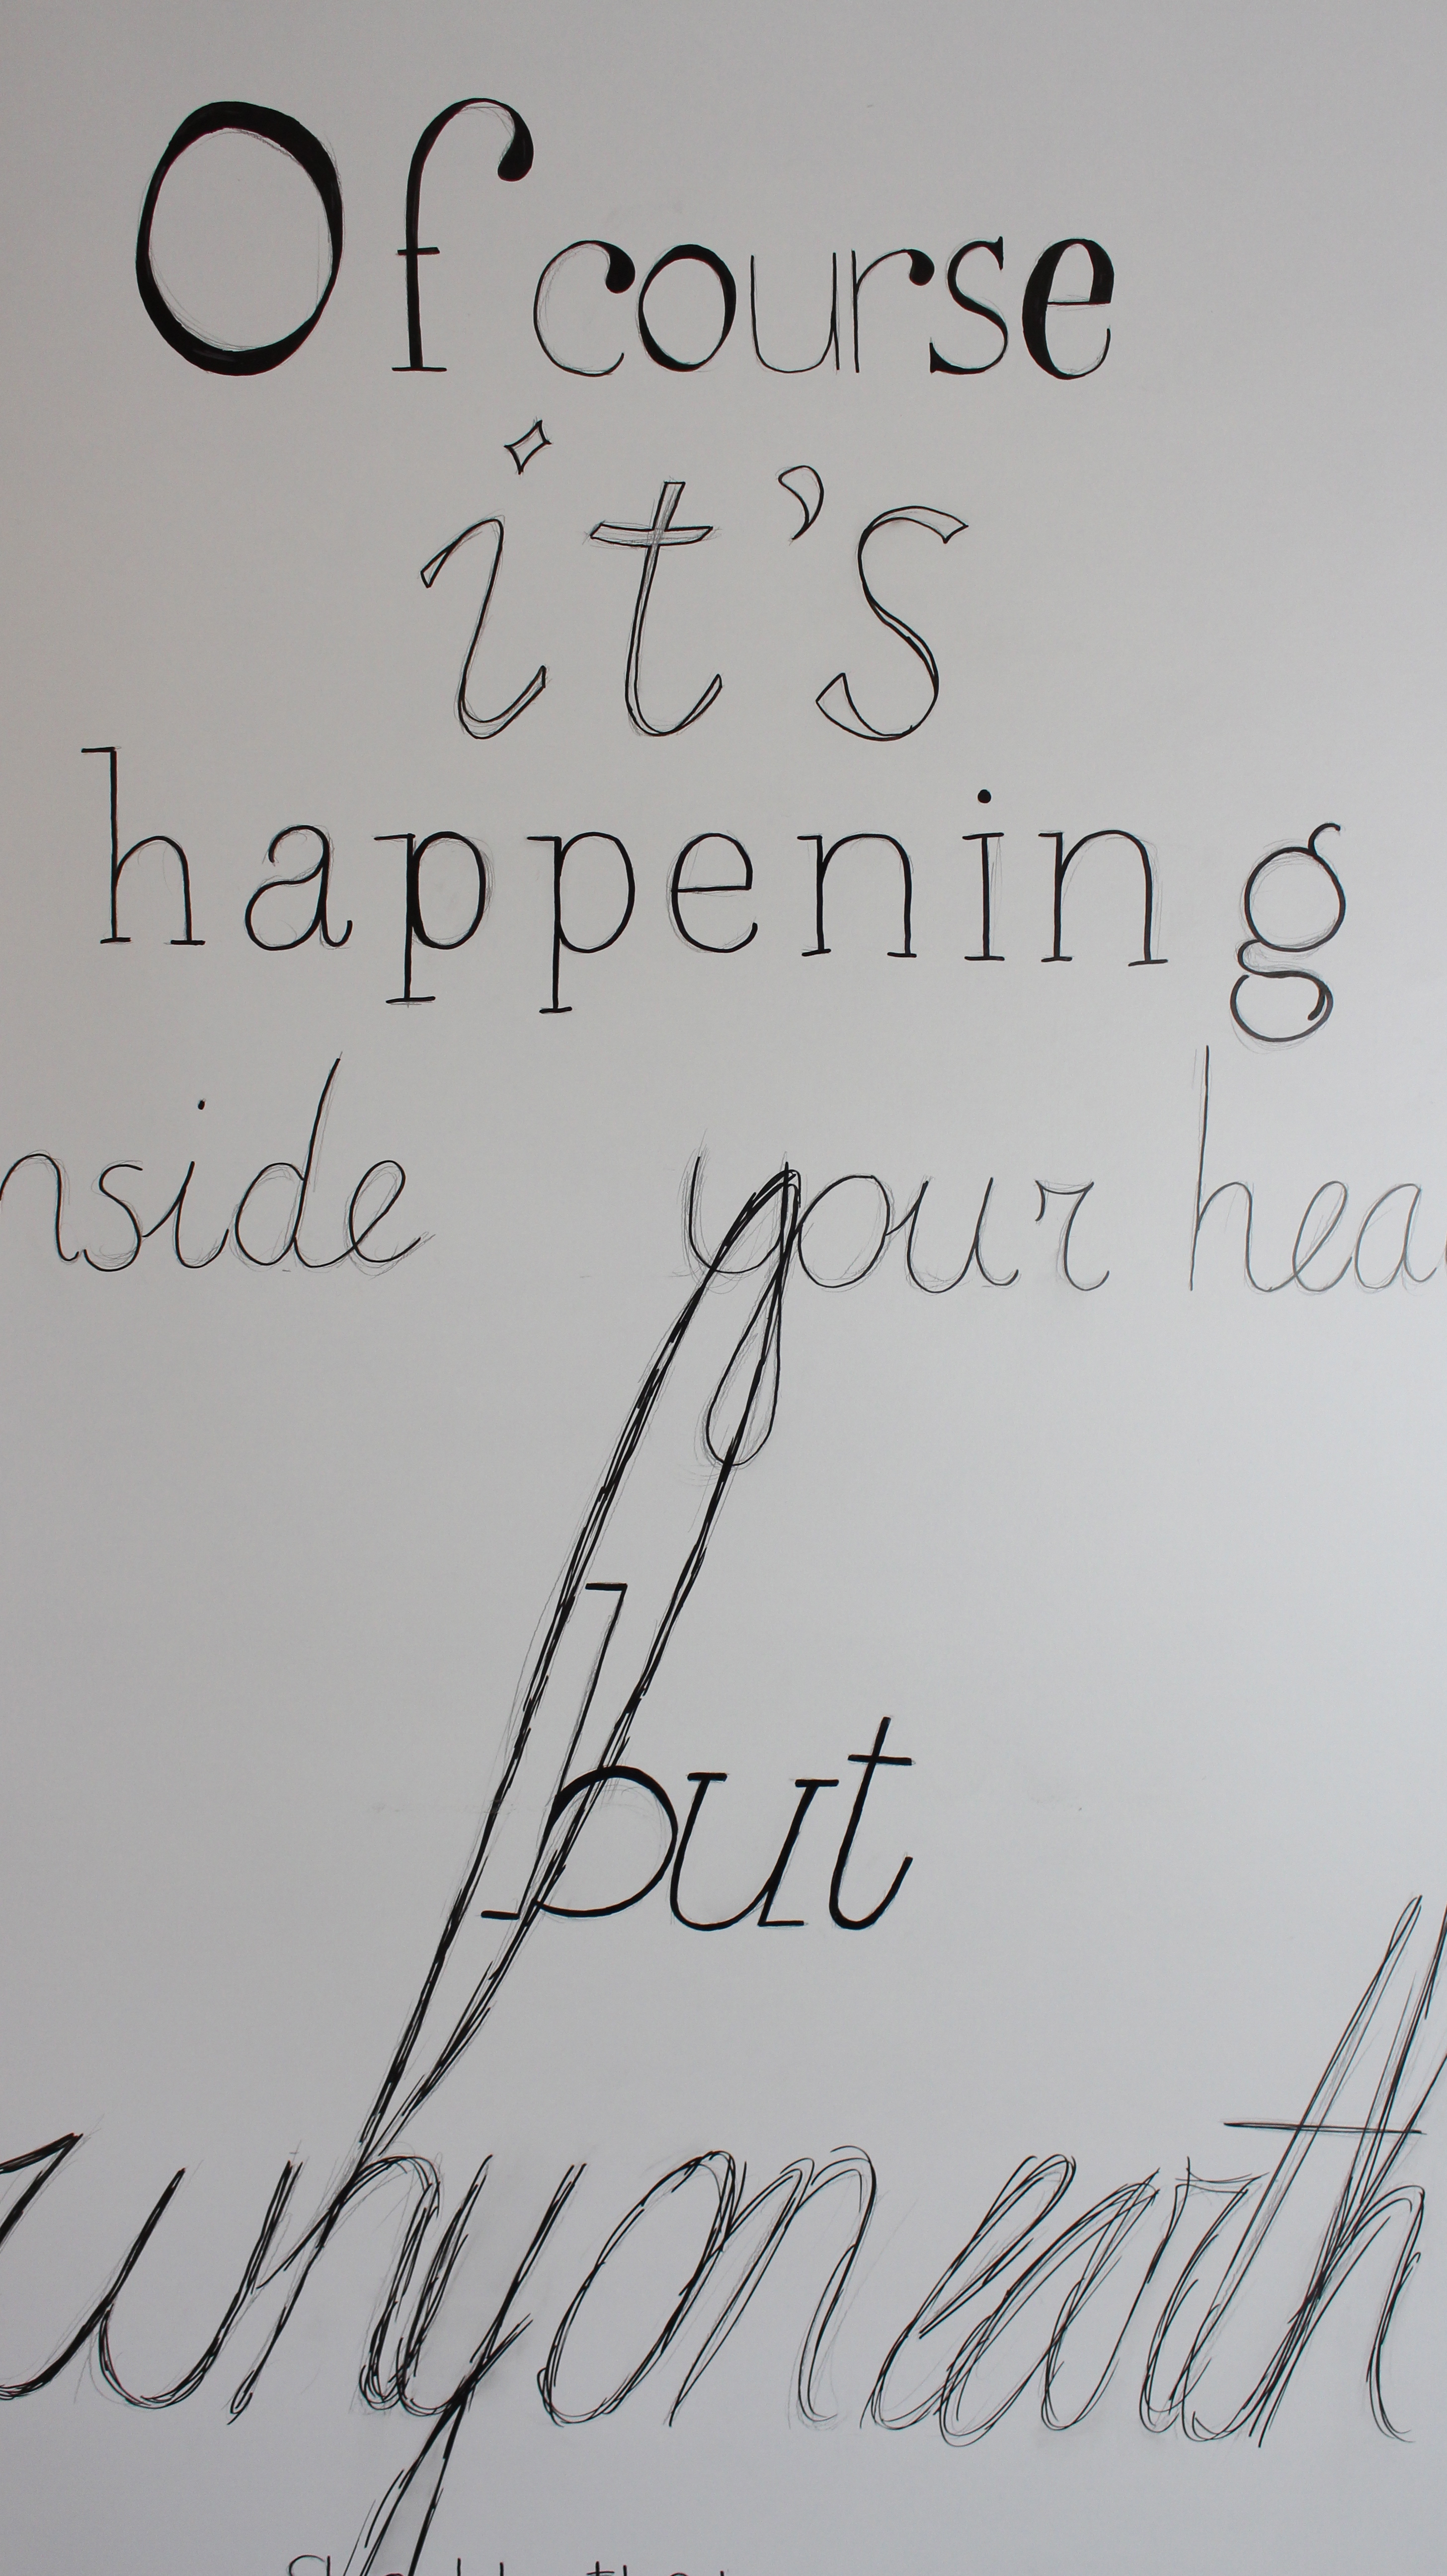 Of course
it's
happening
nside your hea
but
why on earth